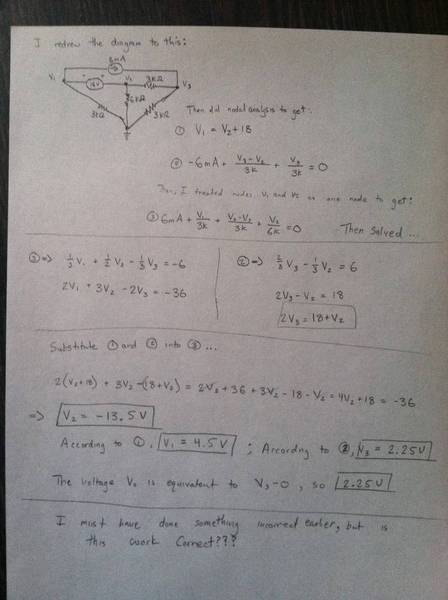 I redrew the diagram to this:
6mA
V₁ + 18V - V₂ 3kΩ V₃
6kΩ
3kΩ 3kΩ
Then did nodal analysis to get:
① V₁ = V₂+18
② -6mA + (V₃-V₂)/3k + V₃/3k = 0
Then, I treated nodes V₁ and V₂ as one node to get:
③ 6mA + V₁/3k + (V₂-V₃)/3k + V₂/6k = 0
Then Solved...
③ => 1/3 V₁ + 1/2 V₂ - 1/3 V₃ = -6
2V₁ + 3V₂ - 2V₃ = -36
② => 2/3 V₃ - 1/3 V₂ = 6
2V₃ - V₂ = 18
2V₃ = 18+V₂
Substitute ① and ② into ③ ...
2(V₂+18) + 3V₂ -(18+V₂) = 2V₂ + 36 + 3V₂ - 18 - V₂ = 4V₂ + 18 = -36
=> V₂ = -13.5V
According to ①, V₁ = 4.5V ; According to ②, V₃ = 2.25V
The voltage V₀ is equivalent to V₃-0, so 2.25V
I must have done something incorrect earlier, but is
this work correct???